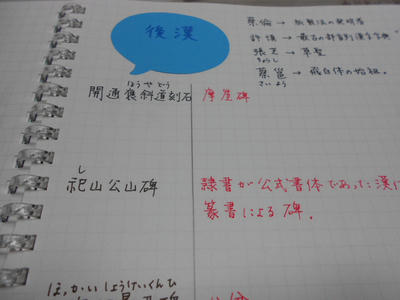 後漢
蔡倫 → 製紙法の発明者
許慎 → 最古の部首別漢字字典
張芝 → 草聖
ちょうし
蔡邕 → 飛白体の始祖。
さいよう
ほうやどう
開通褒斜道刻石 摩崖碑
し
祀山公山碑
隷書が公式書体であった漢代
篆書による碑。
ほっかいしょうけいくんひ